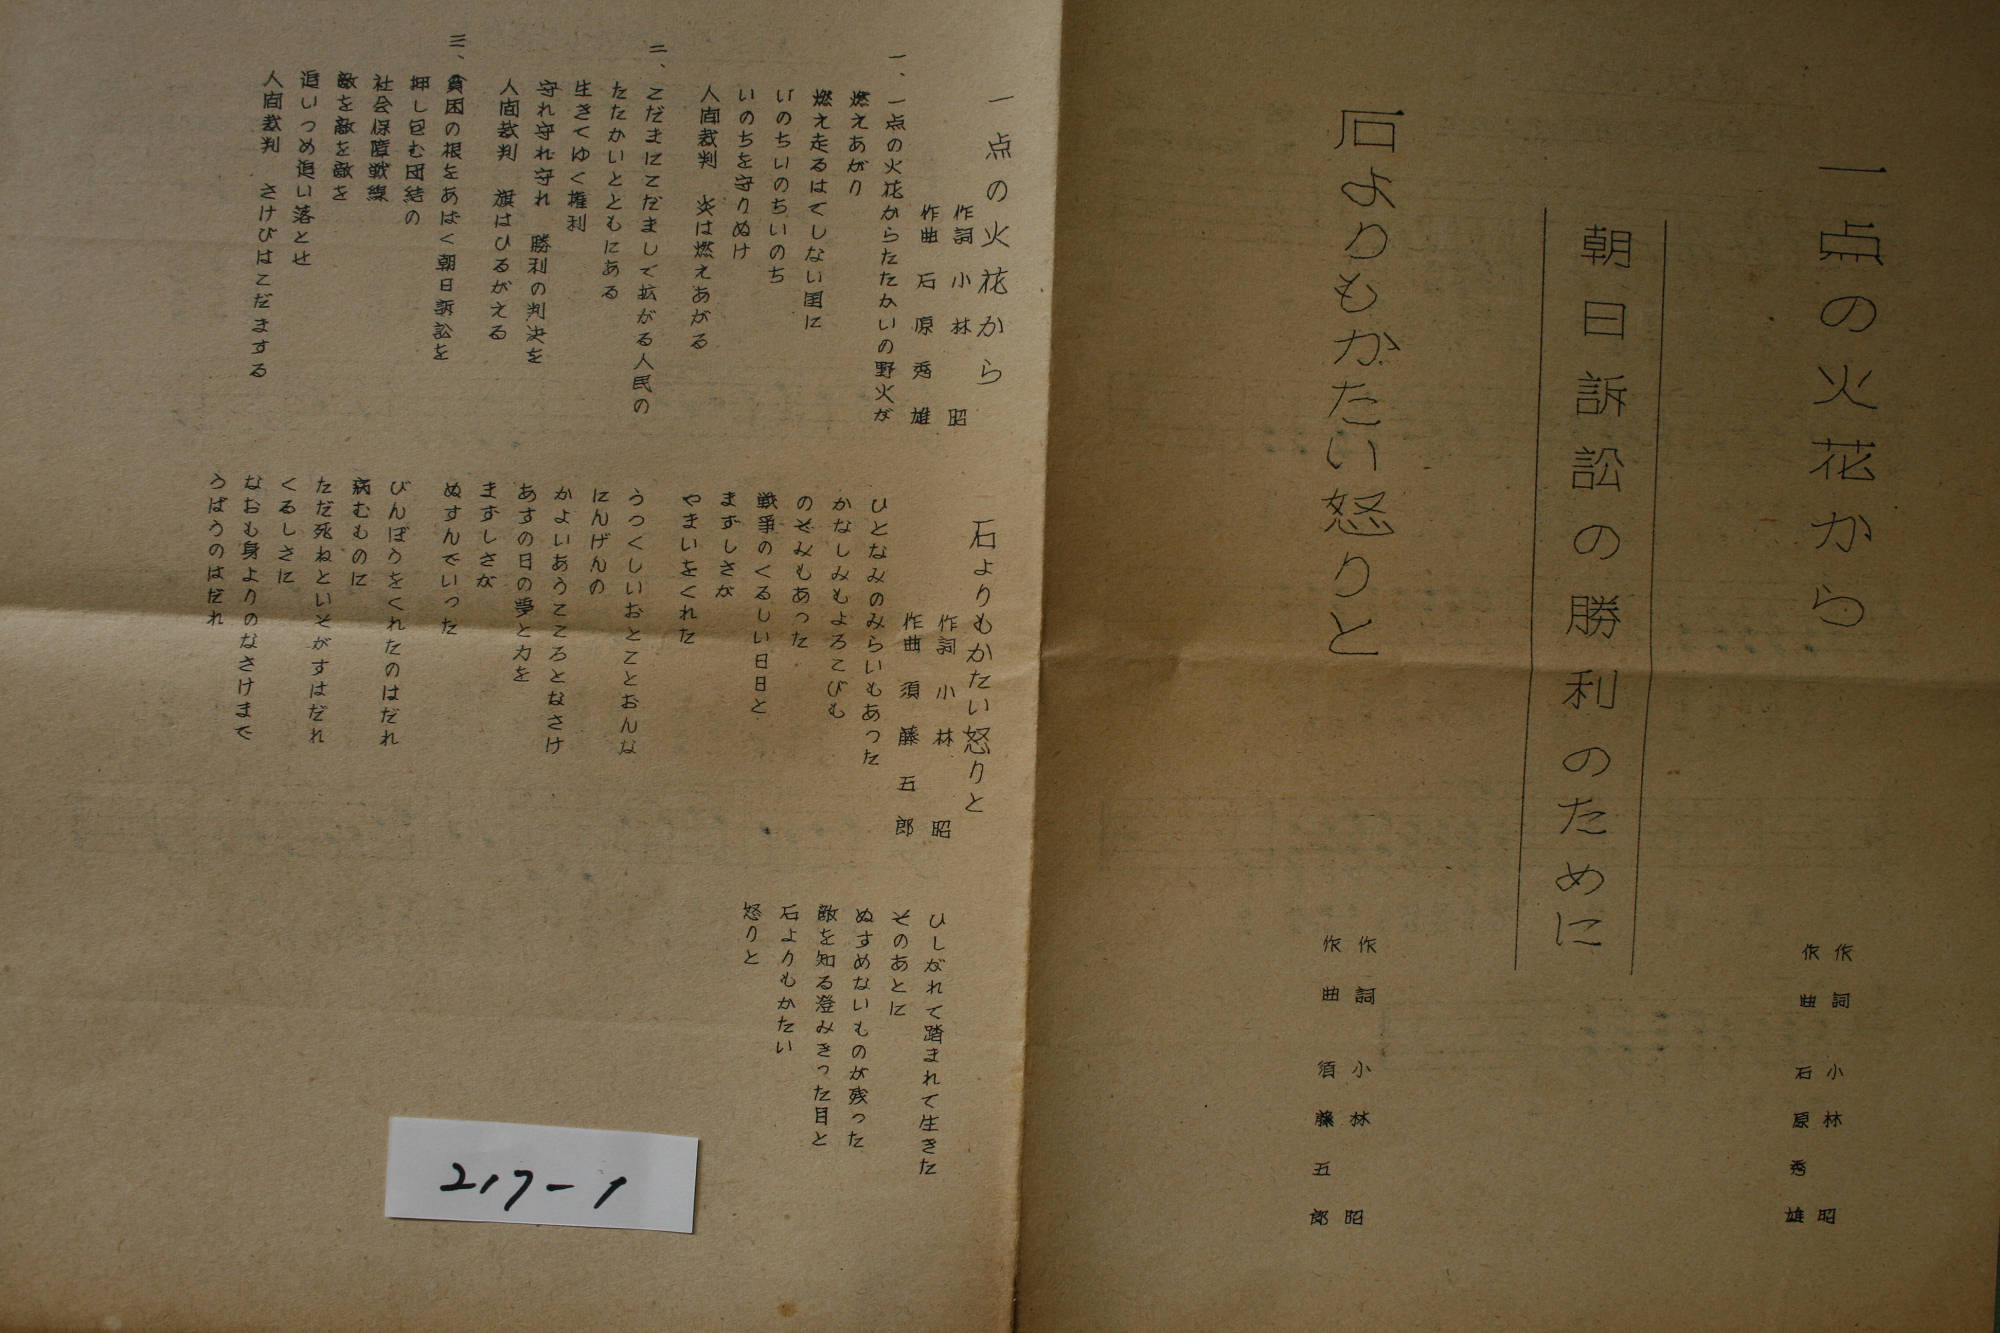 一点の火花から
作詞 小林 昭
作曲 石原秀雄
朝日訴訟の勝利のために
石よりもかたい怒りと
作詞 小林 昭
作曲 須藤五郎
一点の火花から
作詞 小林 昭
作曲 石原秀雄
一、一点の火花からたたかいの野火が
燃えあがり
燃え走るはてしない国に
いのちいのちいのち
いのちを守りぬけ
人间裁判 炎は燃えあがる
二、こだまにこだまして拡がる人民の
たたかいとともにある
生きてゆく権利
守れ守れ守れ 勝利の判决を
人间裁判 旗はひるがえる
三、貧困の根をあばく朝日訴訟を
押し包む団結の
社会保障戦線
敵を敵を敵を
追いつめ追い落とせ
人间裁判 さけびはこだまする
石よりもかたい怒りと
作詞 小林 昭
作曲 須藤五郎
ひとなみのみらいもあった
かなしみもよろこびも
のぞみもあった
戦争のくるしい日日と
まずしさが
やまいをくれた
うつくしいおとことおんな
にんげんの
かよいあうこころとなさけ
あすの日の夢と力を
まずしさが
ぬすんでいった
びんぼうをくれたのはだれ
病むものに
ただ死ねといそがすはだれ
くるしさに
なおも身よりのなさけまで
うばうのはだれ
ひしがれて踏まれて生きた
そのあとに
ぬすめないものが残った
敵を知る澄みきった目と
石よりもかたい
怒りと
217-1